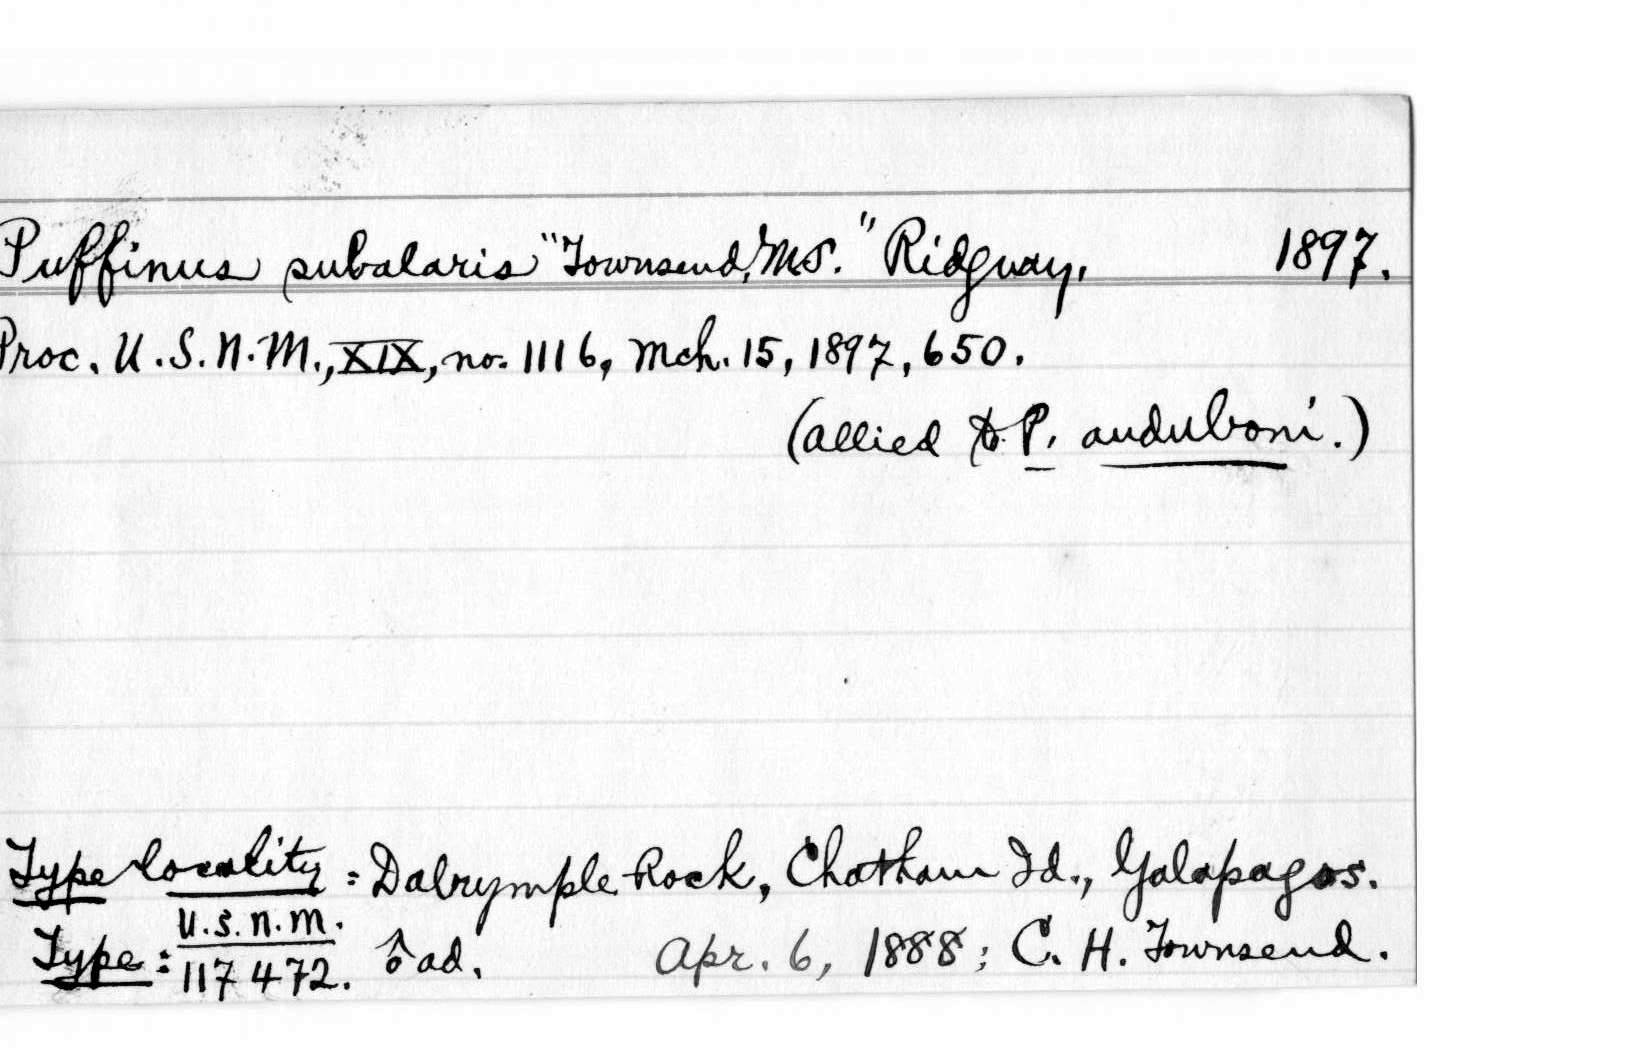 Puffinus subalaris "Townsend, MS." Ridgway, 1897.
Proc. U.S.N.M., XIX, no. 1116, Mch. 15, 1897, 650.
(allied to P. auduboni.)
Type locality: Dalrymple Rock, Chatham Id., Galapagos.
U.S.N.M.
Type: 117472. ♂ ad. Apr. 6, 1888; C. H. Townsend.